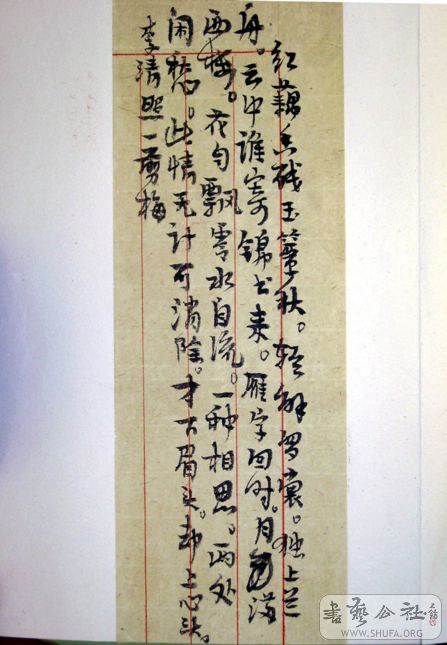 红藕香残玉簟秋。轻解罗裳。独上兰
舟。云中谁寄锦书来。雁字回时。月满
西楼。花自飘零水自流。一种相思。两处
闲愁。此情无计可消除。才下眉头。却上心头。
李清照一剪梅
書藝公社
WWW.SHUFA.ORG